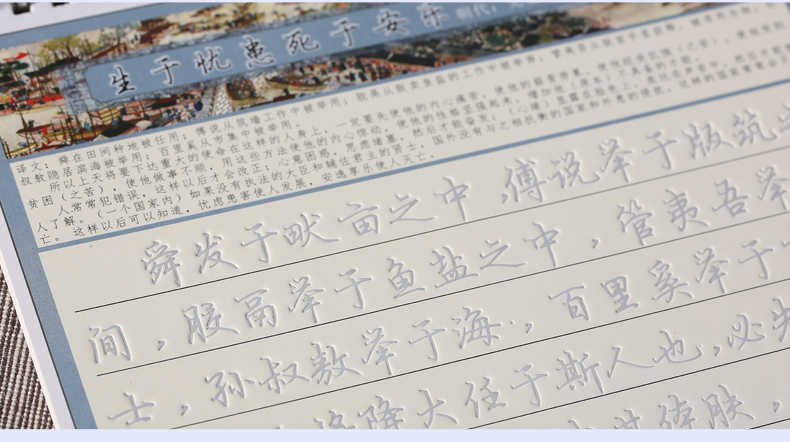 生于忧患死于安乐
朝代：
译文：舜在田间种地被任用；傅说从筑墙工作中被举用；胶鬲从贩卖鱼盐的工作中被举用；管夷吾从
叔敖隐居滨海被举用；百里奚从市集中被举用。
所以上天将要下达重大的使命在这样的人身上，一定要先使他的内心痛苦，使他的筋骨劳累，使他经受饥饿（之苦），使他受到
贫困（之苦），使他做事不顺，用这些方法使他的内心惊动，使他的性格坚强起来，增加他（原本）不具备的才能。
人常常犯错误，这样以后才会改正；心意困惑，思虑堵塞，然后才能奋发；
人了解。（一个国家内）如果没有执法的大臣和辅佐君主的贤士，国外没有与之相抗衡的国家和外患的侵扰，这样的国家常常会
亡。这样以后可以知道，忧虑患害使人发展，安逸享乐使人灭亡。
舜发于畎亩之中，傅说举于版筑之
间，胶鬲举于鱼盐之中，管夷吾举
士，孙叔敖举于海，百里奚举于
将降大任于斯人也，必先
体肤，